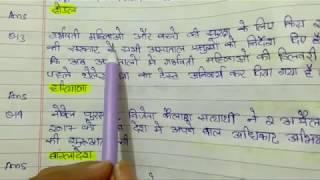 Ans
013 गर्भवती महिलाओं और बच्चे की सुरक्षा के लिए किस
की सरकार ने सभी अस्पताल प्रमुखों को निर्देश दिए हैं
कि अब अस्पतालों में गर्भवती महिलाओं की डिलवरी
पहले थैलेसीमिया का टेस्ट अनिवार्य कर दिया गया है
Ans हरियाणा
014 नोबेल पुरस्कार विजेता कैलाश सत्यार्थी ने 2 अप्रैल
2017 को देश में अपने बाल अधिकार
की शुरुआत
Ans बांग्लादेश